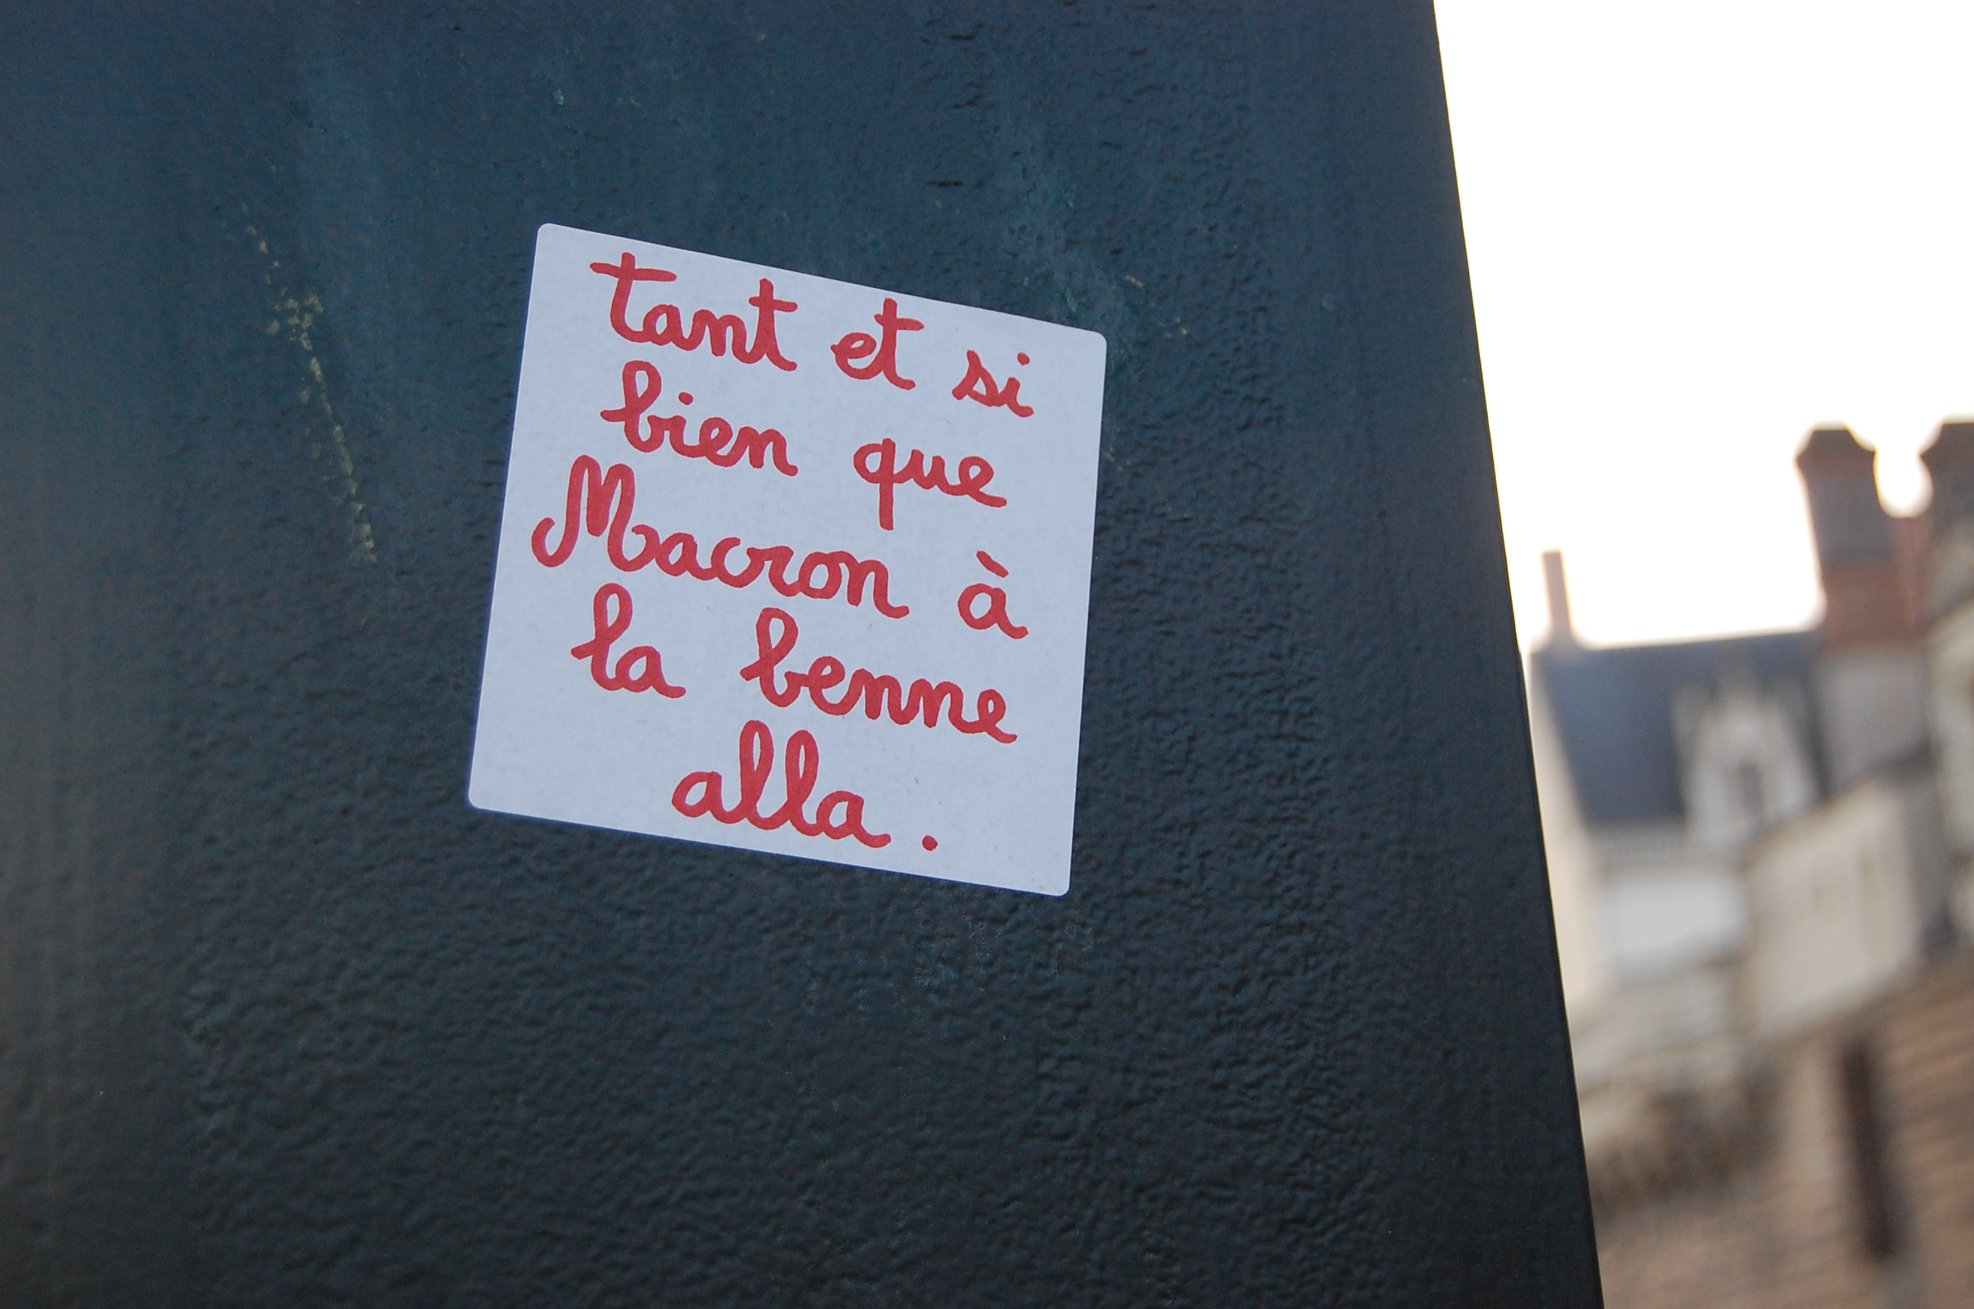 tant et si
bien que
Macron à
la benne
alla.